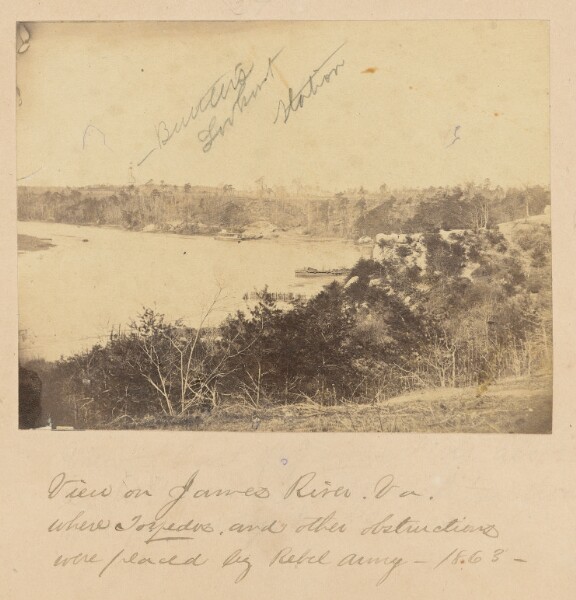 Butler's
Lookout
Station
View on James River. Va.
where Torpedos, and other obstructions
were placed by Rebel army - 1863 -